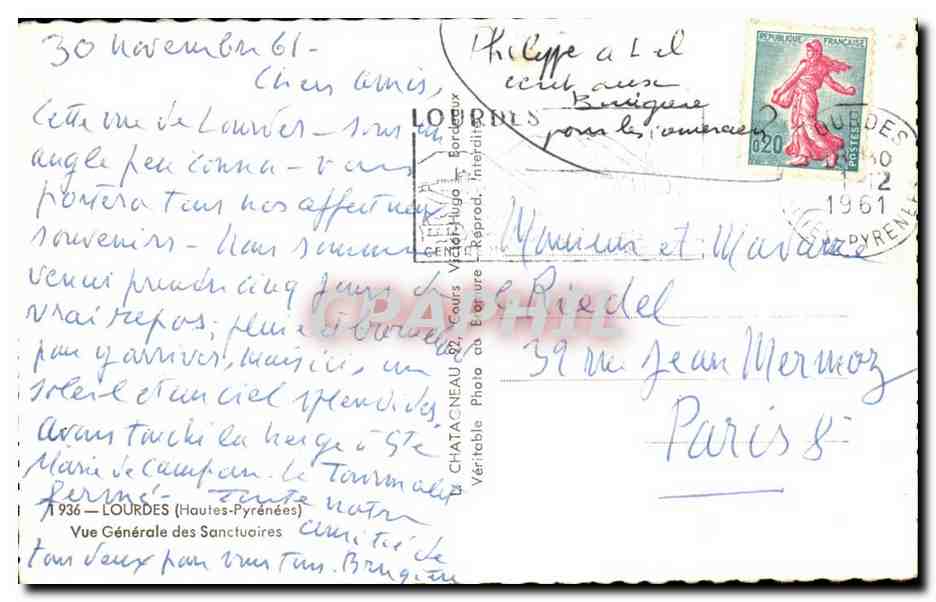 30 novembre 61-
Chers amis,
Cette vue de Lourdes - sous un
angle peu connu - vous
portera tous nos affectueux
souvenirs - Nous sommes
venus prendre cinq jours de
vrai repos; pluie à
pour y arriver, mais ici, un
soleil et un ciel splendides.
Avons touché la neige à Ste
Marie de Campan. Le Tourmalet
fermé - Toute notre
amitié de
tous deux pour vous tous. Brugère
1936 — LOURDES (Hautes-Pyrénées)
Vue Générale des Sanctuaires
CHATAGNEAU 22, Cours Victor-Hugo - Bordeaux
Véritable Photo au Bromure - Reprod. Interdite
Philippe a-t-il
écrit aux
pour les
LOURDES
REPUBLIQUE FRANÇAISE
0,20
POSTES
LOURDES
12
1961
PYRENEES
Monsieur et Madame
Riedel
39 rue Jean Mermoz
Paris 8
CPAPHIL